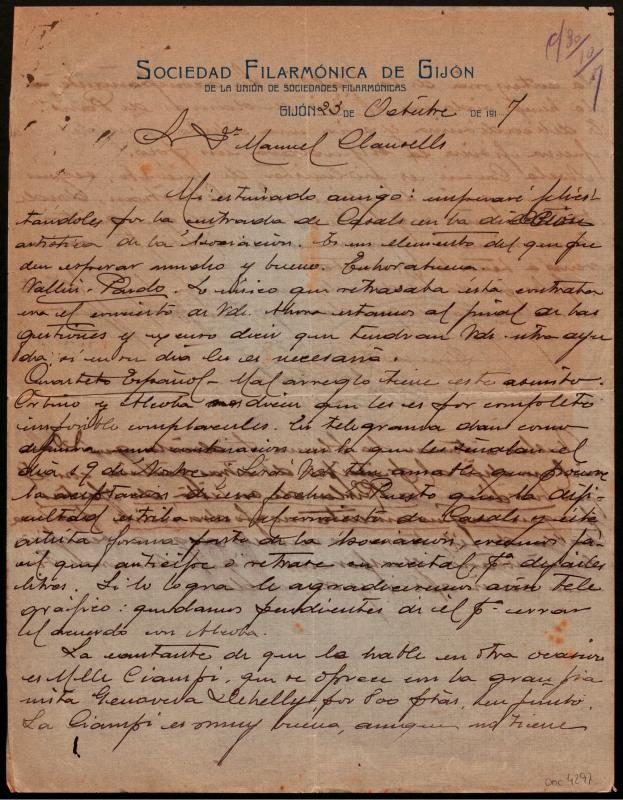 30/10/7
SOCIEDAD FILARMÓNICA DE GIJÓN
DE LA UNIÓN DE SOCIEDADES FILARMÓNICAS
GIJÓN 23 DE Octubre DE 1917
Sr. Dn. Manuel Clausells
Mi estimado amigo: empezaré felici-
tándoles por la entrada de Casals en la dirección
artística de la Asociación. Es un elemento del que pue-
den esperar mucho y bueno. Enhorabuena
Vallin-Pardo. Lo único que retrasaba esta contrata
era el concierto de Vds. Ahora estamos al final de las
gestiones y excuso decir que tendran Vds. ntra ayu-
da si en su día les es necesaria.
Cuarteto Español - Mal arreglo tiene este asunto.
Ortino y Alcoba nos dicen que les es por completo
imposible complacerles. En telegrama dan como
una contratacion en la que les señalan el
día 19 de Novbre. Sean Vds. tan amable que procure
la aceptacion de esa fecha. Puesto que la difi-
cultad estriba en el concierto de Casals y este
artista forma parte de la Asociación creemos fá-
cil que anticipe o retrase su recital, pa dejarles
libres. Si lo logra le agradeceremos aviso tele-
gráfico: quedamos pendientes de él pa cerrar
el acuerdo con Alcoba.
La cantante de que le hablé en otra ocasion
es Mlle Ciampi, que se ofrece con la gran pia-
nista Genoveva Dehelly por 800 ptas.
La Ciampi es muy buena, aunque no tiene
DOC 4297